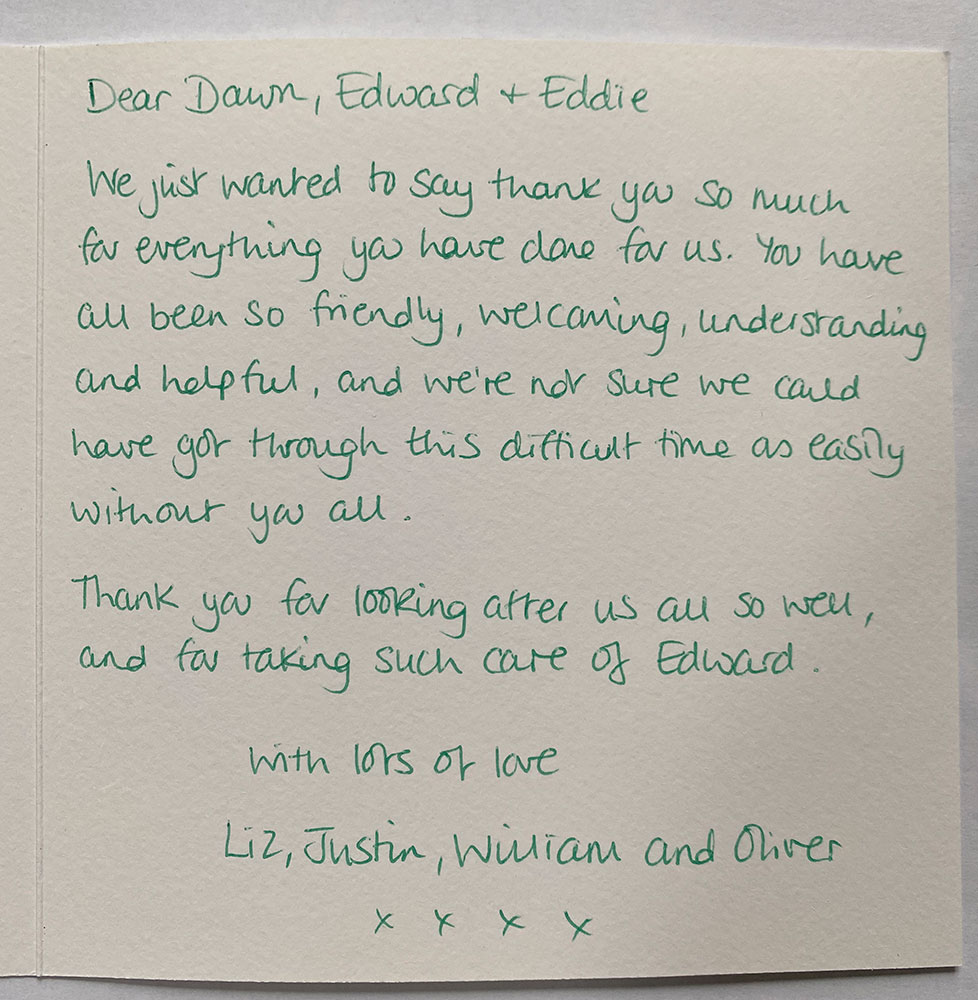 Dear Dawn, Edward + Eddie
We just wanted to say thank you so much
for everything you have done for us. You have
all been so friendly, welcoming, understanding
and helpful, and we're not sure we could
have got through this difficult time as easily
without you all.
Thank you for looking after us all so well,
and for taking such care of Edward.
with lots of love
Liz, Justin, William and Oliver
x x x x